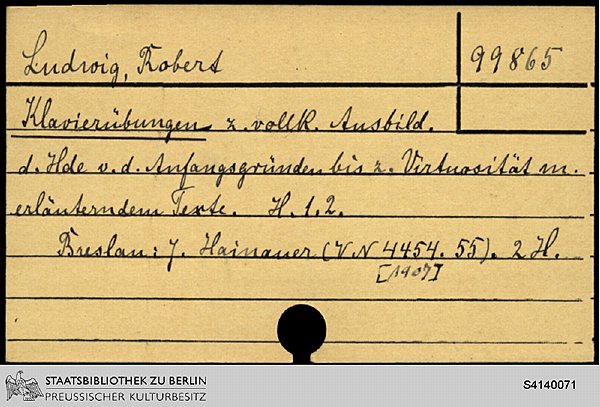 Ludwig, Robert
99865
Klavierübungen z. vollk. Ausbild.
d. Hde v. d. Anfangsgründen bis z. Virtuosität m.
erläuterndem Texte. H. 1. 2.
Breslau: J. Hainauer (V. N 4454. 55). 2 H.
[1907]
STAATSBIBLIOTHEK ZU BERLIN
PREUSSISCHER KULTURBESITZ
S4140071